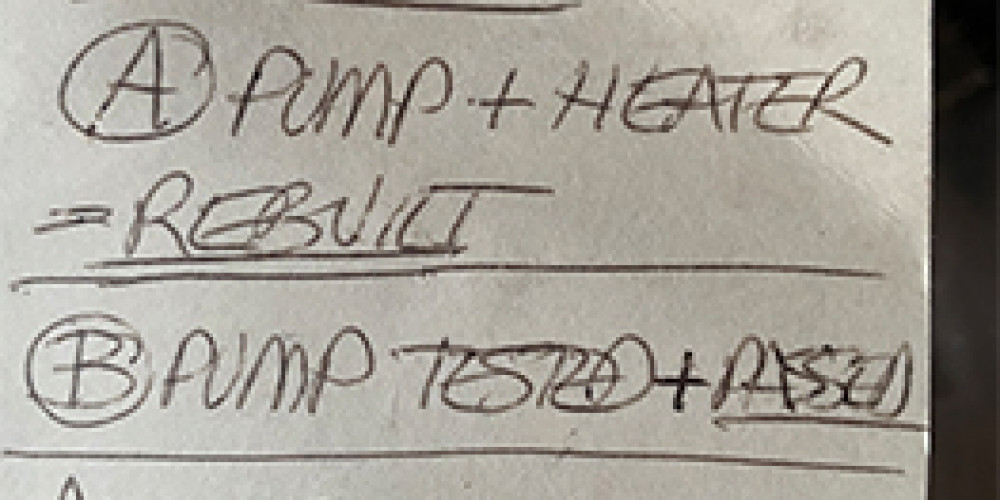 Ⓐ PUMP + HEATER
= REBUILT
Ⓑ PUMP TESTED + PASSED